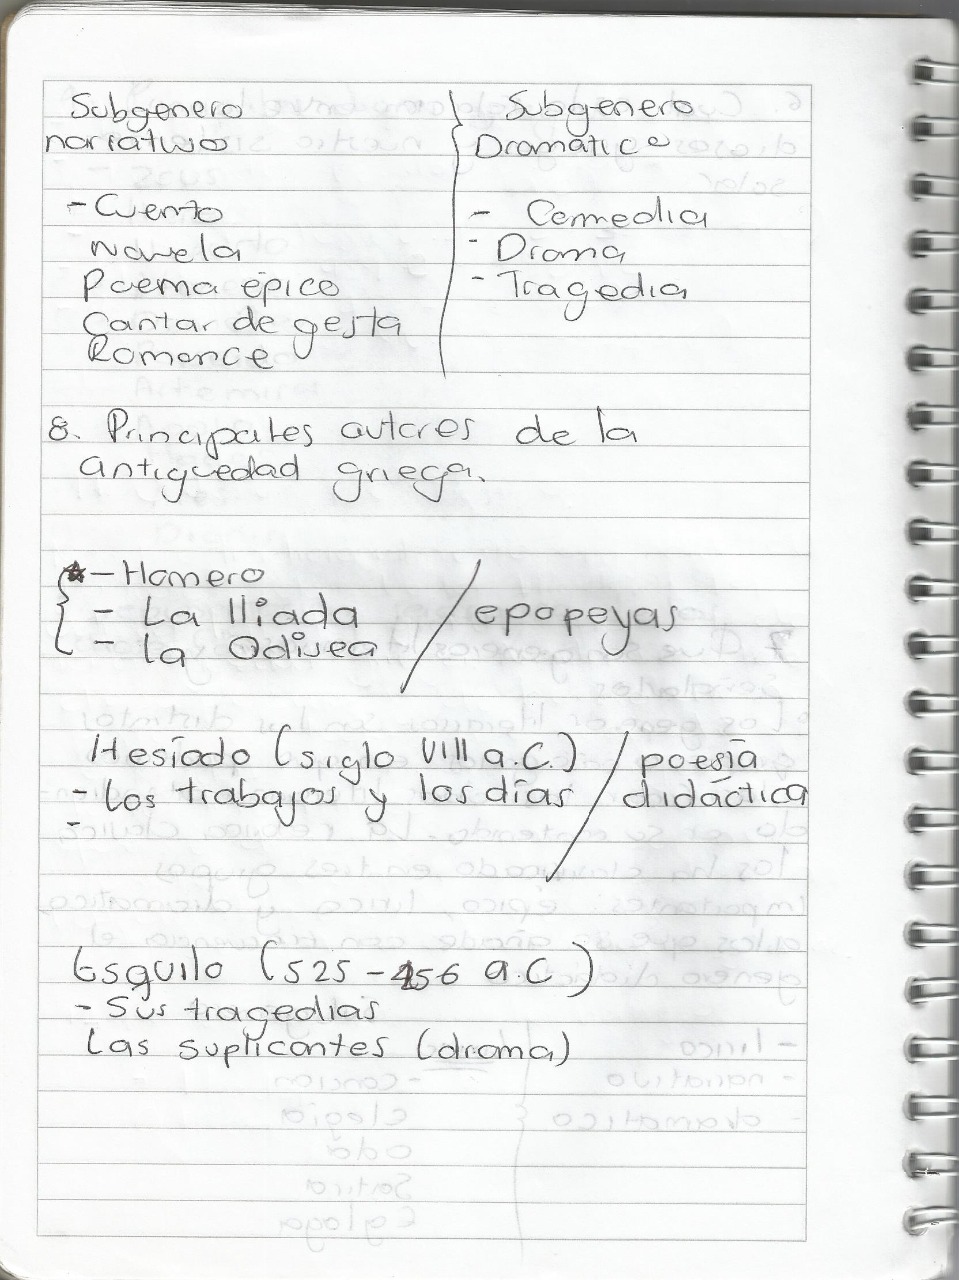 Subgenero
narrativo
- Cuento
Novela
Poema épico
Cantar de gesta
Romance
Subgenero
Dramatico
- Comedia
- Drama
- Tragedia
8. Principales autores de la
antiguedad griega.
- Homero
- La Iliada
- La Odisea
epopeyas
Hesíodo (siglo VIII a.C.)
- Los trabajos y los días
-
poesía
didáctica
Esquilo (525 - 456 a.C)
- Sus tragedias
Las suplicantes (drama)